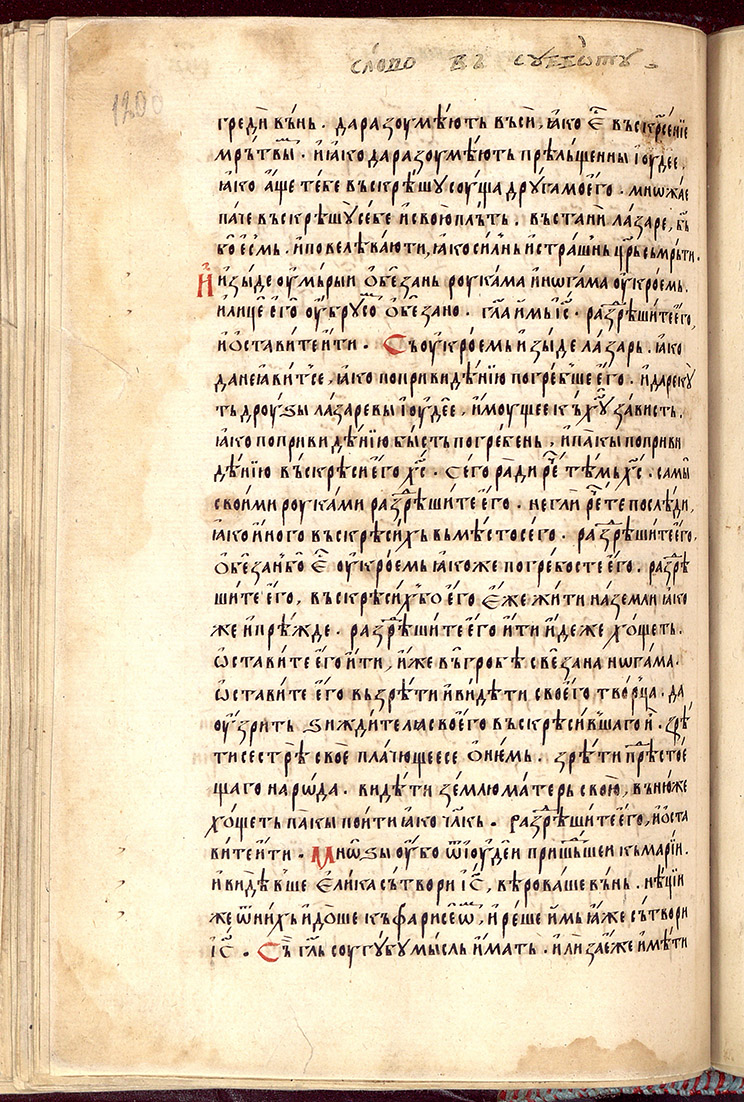 сло́во въ сꙋббѡтꙋ
1200
греди̏ въ́нь · да разоумѣ́ють въсѝ, ꙗ҆ко є҆́с҃ въскр҃се́нїе
мрь́твыⷨ · и҆ ꙗ҆ко да разоумѣ́ють прѣль́щенны і҆оу́дее ·
ꙗ҆ко а҆́ще те́бе въскрѣ́шꙋ соу́ща дрꙋ́га моє҆го · мнѡжа́е
па́че въскрѣшꙋ̀ се́бе и҆ свою̀ пль́ть · въстанѝ ла́заре, бь҃
бо̀ є҆́смь · и҆ повелѣ́ваю ти, ꙗ҆ко си́льнь и҆ стра́шнь цр҃ь съмрь́ти ·
И҆ и҆зы́де оу҆мь́рыи ѻ҆бе́зань роука́ма и҆ ногама оу҆кро́ємь ·
и҆ лицѐ є҆го̀ оу҆брꙋ́соⷨ ѻ҆бе́зано · гл҃а и҆мь і҆с҃ · раздрѣши́те є҆го,
и҆ ѻ҆ста́вите и҆ти · Съ оу҆кро́ємь и҆зы́де ла́зарь · ꙗ҆ко
да не ꙗ҆ви́т се, ꙗ҆ко по привидѣ́нїю погрѣ́бше є҆го · и҆ да рекꙋ́
ть дроу́ѕы ла́заревы і҆оу́дее, и҆моущее къ хꙋ҃ за́висть ·
ꙗ҆ко по привидѣ́нїю бы́сть погре́бень, и҆ па́кы по приви
дѣ́нїю въскрѣ́си є҆го х҃с · Сего ра́ди ре́ч тѣ́мь х҃с · самы̏
свои́ми роука́ми раздрѣши́те є҆го · негли̏ ре́чте послѣ́ди,
ꙗ҆ко и҆́ного въскрѣси́хь въмѣ́сто сего · раздрѣши́те є҆го,
ѻ҆бе́зан бо̀ є҆́с҃ оу҆кро́ємь ꙗ҆коже погребо́сте є҆го · раздрѣ
ши́те є҆го, въскрѣси́х бо є҆го є҆́же жи́ти на земли̏ ꙗ҆ко
же и҆ прѣ́жде · раздрѣши́те є҆го и҆ти и҆́деже хо́щеть ·
ѡ҆ста́вите є҆го и҆ти, и҆́же въ гро́бѣ све́зана ногама ·
ѡ҆ста́вите є҆го възрѣ́ти и҆ ви́дѣти своє҆го тво́рца · да
оу҆́зрить ѕижди́телꙗ своє҆го въскрѣси́вшаго и҆̀ · зрѣ́
ти сестрѣ̀ своѐ пла́чющее се ѻ҆ нє́мь · зрѣ́ти прѣⷣстоє҆́
щаго наро́да · ви́дѣти зе́млю ма́терь свою̀, въ ню́же
хо́щеть па́кы поити ꙗ҆ко чл҃кь · раздрѣши́те є҆го, и҆ ѻ҆ста
вите и҆ти · Мнѡѕы оу҆́бо ѿ і҆оу́деи прише́дшеи къ марі́и ·
и҆ ви́дѣвше є҆ли́ка сътвори і҆с҃, вѣ́роваше въ́нь · нѣ́цїи
же ѿ ни́хь и҆до́ше къ фарисе́ѡⷨ, и҆ рѣ́ше и҆мь ꙗ҆́же сътвори
і҆с҃ · Съ̏ гл҃ь соугꙋ́бꙋ мы́сль и҆́мать · и҆ли за є҆́же и҆мѣ́ти